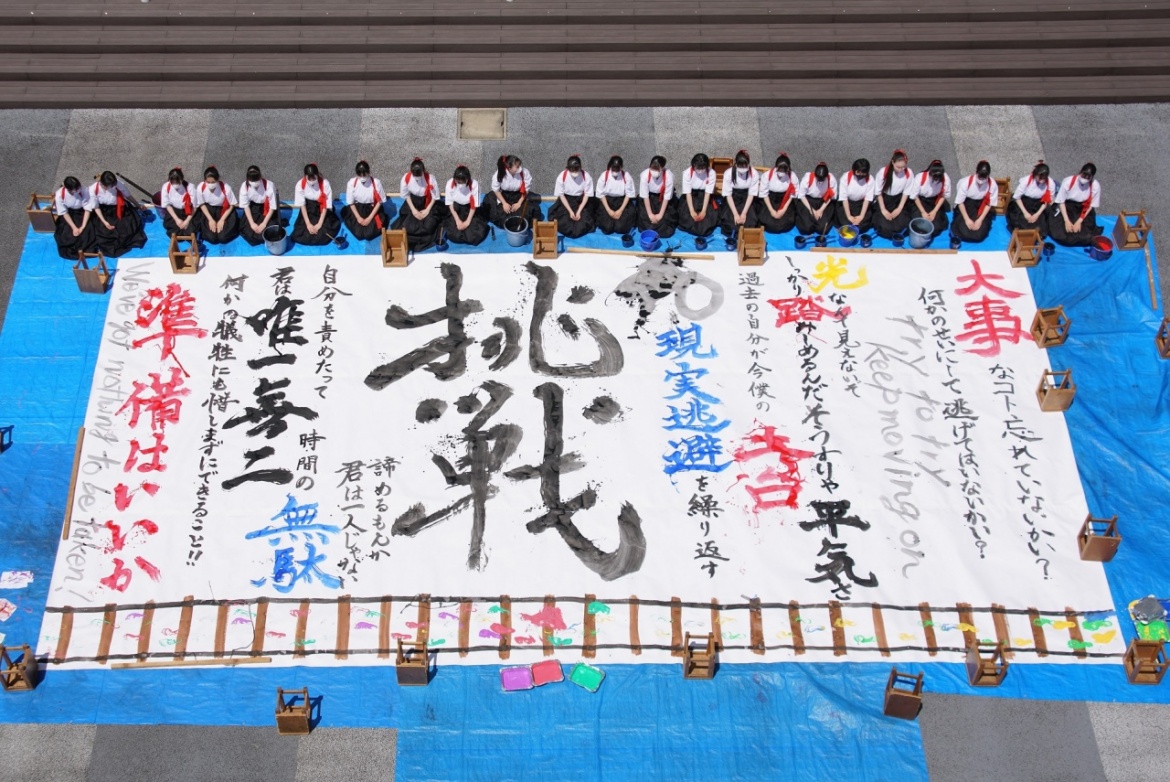 大事なコト忘れていないかい?
何かのせいにして逃げてはいないかい?
try to try
keep moving on
光なんて見えないで
しっかり踏みしめるんだそうすりゃ平気さ
過去の自分が今僕の土台
現実逃避を繰り返す
挑戦
諦めるもんか
君は一人じゃない
自分を責めたって時間の無駄
君は唯一無二
何かの犠牲にも惜しまずにできること!!
準備はいいか
We've got nothing to be taken!